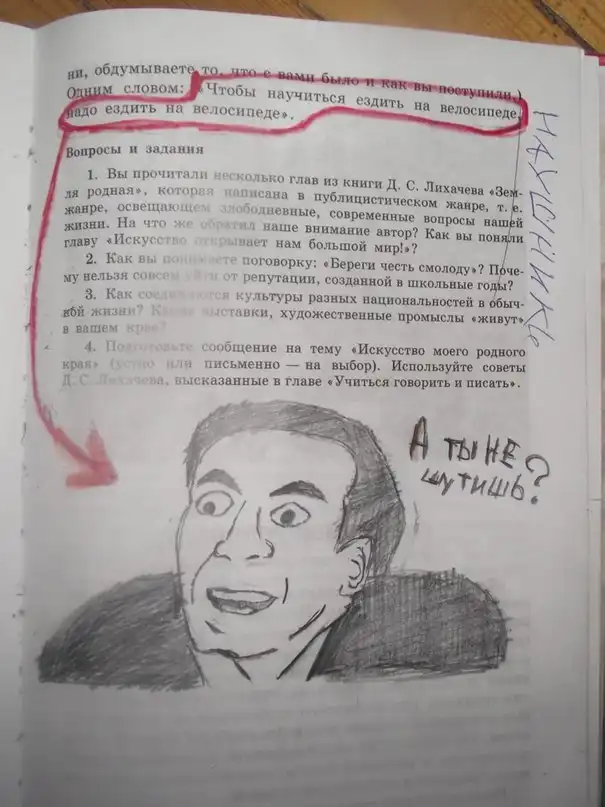 ни, обдумываете то, что с вами было и как вы поступили.)
Одним словом: «Чтобы научиться ездить на велосипеде,
надо ездить на велосипеде».
Вопросы и задания
1. Вы прочитали несколько глав из книги Д. С. Лихачева «Зем-
ля родная», которая написана в публицистическом жанре, т. е.
жанре, освещающем злободневные, современные вопросы нашей
жизни. На что же обратил наше внимание автор? Как вы поняли
главу «Искусство открывает нам большой мир!»?
2. Как вы понимаете поговорку: «Береги честь смолоду»? Поче-
му нельзя совсем уйти от репутации, созданной в школьные годы?
3. Как соединяются культуры разных национальностей в обыч-
ной жизни? Какие выставки, художественные промыслы «живут»
в вашем крае?
4. Подготовьте сообщение на тему «Искусство моего родного
края» (устно или письменно — на выбор). Используйте советы
Д. С. Лихачева, высказанные в главе «Учиться говорить и писать».
А ТЫ НЕ
шутишь?